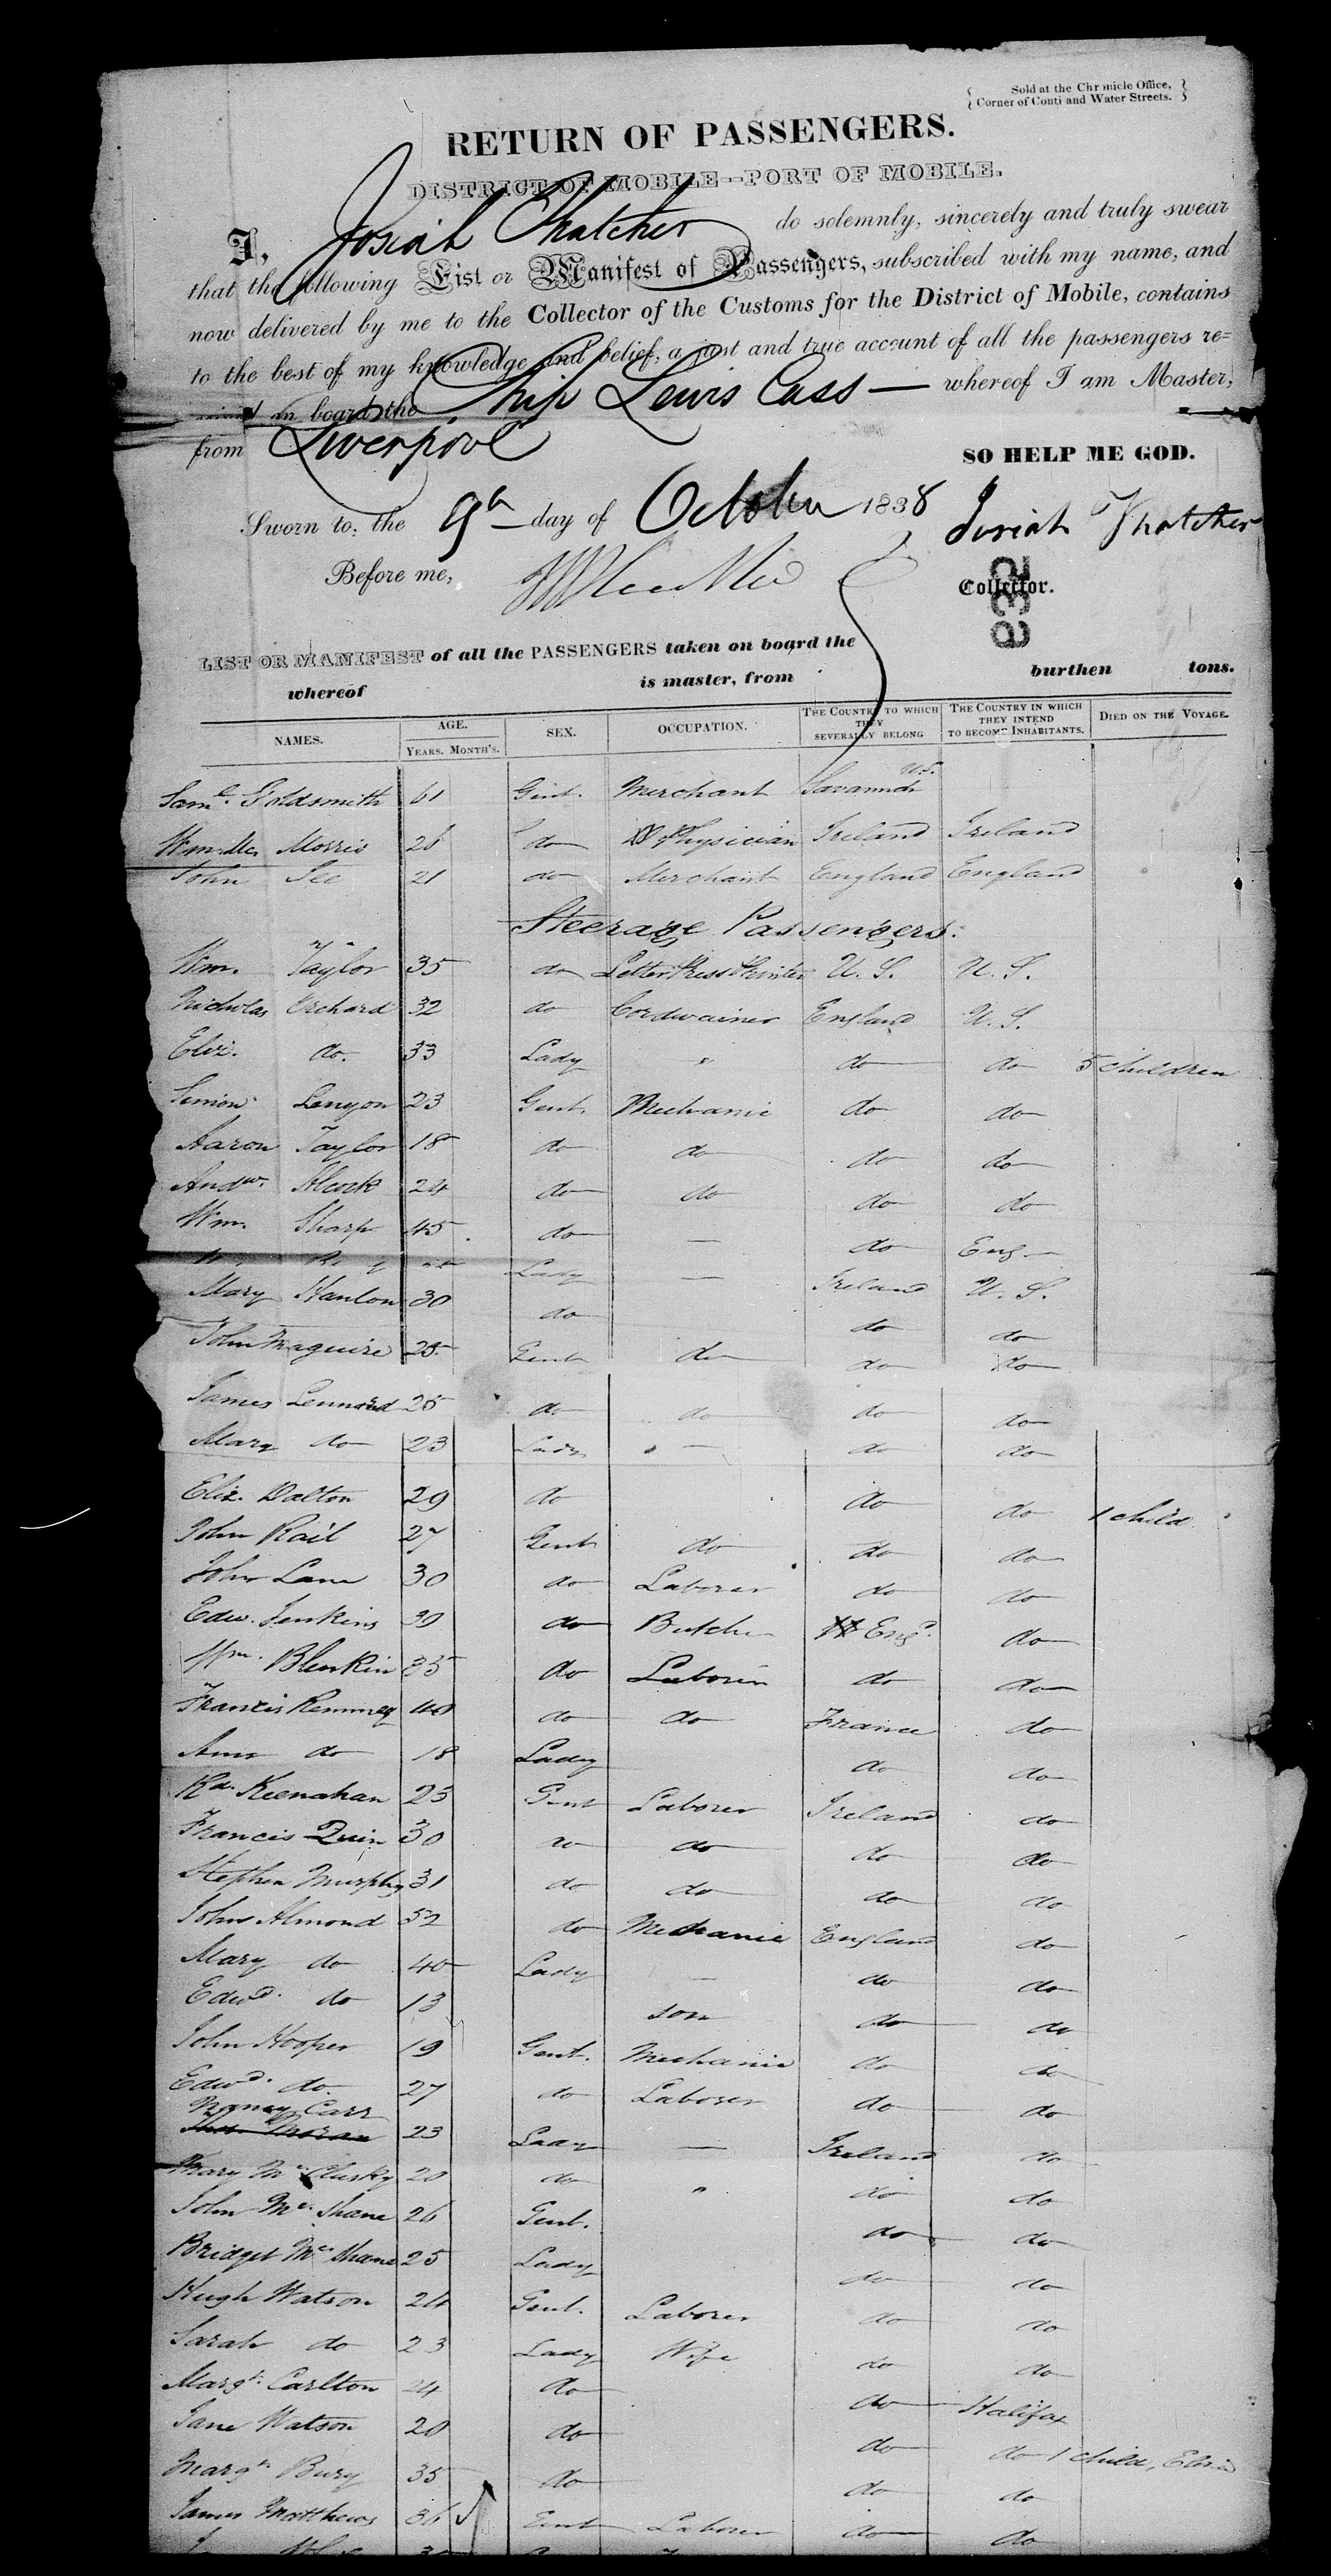 Sold at the Chronicle Office,
Corner of Conti and Water Streets.
RETURN OF PASSENGERS.
DISTRICT OF MOBILE--PORT OF MOBILE.
I, Josiah Thatcher do solemnly, sincerely and truly swear
that the following List or Manifest of Passengers, subscribed with my name, and
now delivered by me to the Collector of the Customs for the District of Mobile, contains
to the best of my knowledge and belief, a just and true account of all the passengers re=
on board the Ship Lewis Cass — whereof I am Master,
from Liverpool
SO HELP ME GOD.
Sworn to; the 9th day of October 1838 Josiah Thatcher
Before me,
Collector.
832
LIST OR MANIFEST of all the PASSENGERS taken on board the
burthen tons.
whereof is master, from
NAMES. AGE. YEARS. MONTH'S. SEX. OCCUPATION. THE COUNTRY TO WHICH THEY SEVERALLY BELONG THE COUNTRY IN WHICH THEY INTEND TO BECOME INHABITANTS. DIED ON THE VOYAGE.
Saml. Goldsmith 61 Gent. Merchant Savannah U.S.
Wm. Mc. Morris 26 do Physician Ireland Ireland
John Lee 21 do Merchant England England
Steerage Passengers.
Wm. Taylor 35 do Letter Press Printer U. S. U. S.
Nicholas Orchard 32 do Cordwainer England U. S.
Eliz. do. 33 Lady " do do 5 children
Simion Lanyon 23 Gent. Mechanic do do
Aaron Taylor 18 do do do do
Andw. Alcock 24 do do do do
Wm. Sharp 45 do — do Eng.
Lady — Ireland U. S.
Mary Hanlon 30 do do do
John Maguire 25 Gent do do do
James Lennard 25 do do do do
Mary do 23 Lady — do do
Eliz. Dalton 29 do do do 1 child
John Rail 27 Gent do do do
John Lane 30 do Laborer do do
Edw. Jenkins 30 do Butcher Engd. do
Wm. Blenkin 35 do Laborer do do
Francis Remmey 40 do do France do
Ann do 18 Lady do do
Rd. Keenahan 23 Gent Laborer Ireland do
Francis Quin 30 do do do do
Stephen Murphy 31 do do do do
John Almond 52 do Mechanic England do
Mary do 40 Lady — do do
Edwd. do 13 son do do
John Hooper 19 Gent. Mechanic do do
Edwd. do. 27 do Laborer do do
Nancy Carr
Moran 23 Lady — Ireland do
Mary McClusky 20 do " do do
John Mc. Shane 26 Gent. do do
Bridget Mc Shane 25 Lady do do
Hugh Watson 24 Gent. Laborer do do
Sarah do 23 Lady Wife do do
Margt. Carlton 24 do do Halifax
Jane Watson 20 do do do 1 child, Eliza
Margt. Bury 35 do do do
James Matthews 36 Gent Laborer do do